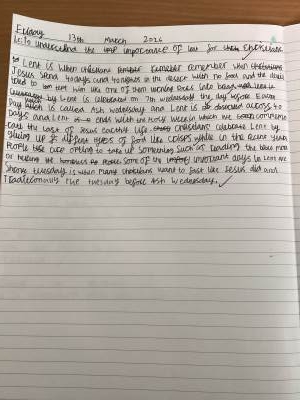 Friday 13th March 2026
L.O: To understand the importance of lent for christians
Lent is when christians remember when
Jesus spend 40days and 40nights in the desert with no food and the devil
tried to tempt him like one of them turning rocks into bread
by Lent is celebrated on 7th wednesday the day before Easter
Day which is called Ash wednesday and Lent is across 40
Days and Lent ends with the Holy week in which we commemo
rate the last of Jesus earthly life. christians celebrate Lent by
giving up different types of food like crisps while in the recent years
People are opting to take up something such as reading the bible more
or helping the homeless people some of the important days in Lent are
Shrove tuesday is when many christians want to fast like Jesus did and
Traditionally the tuesday before Ash Wednesday.